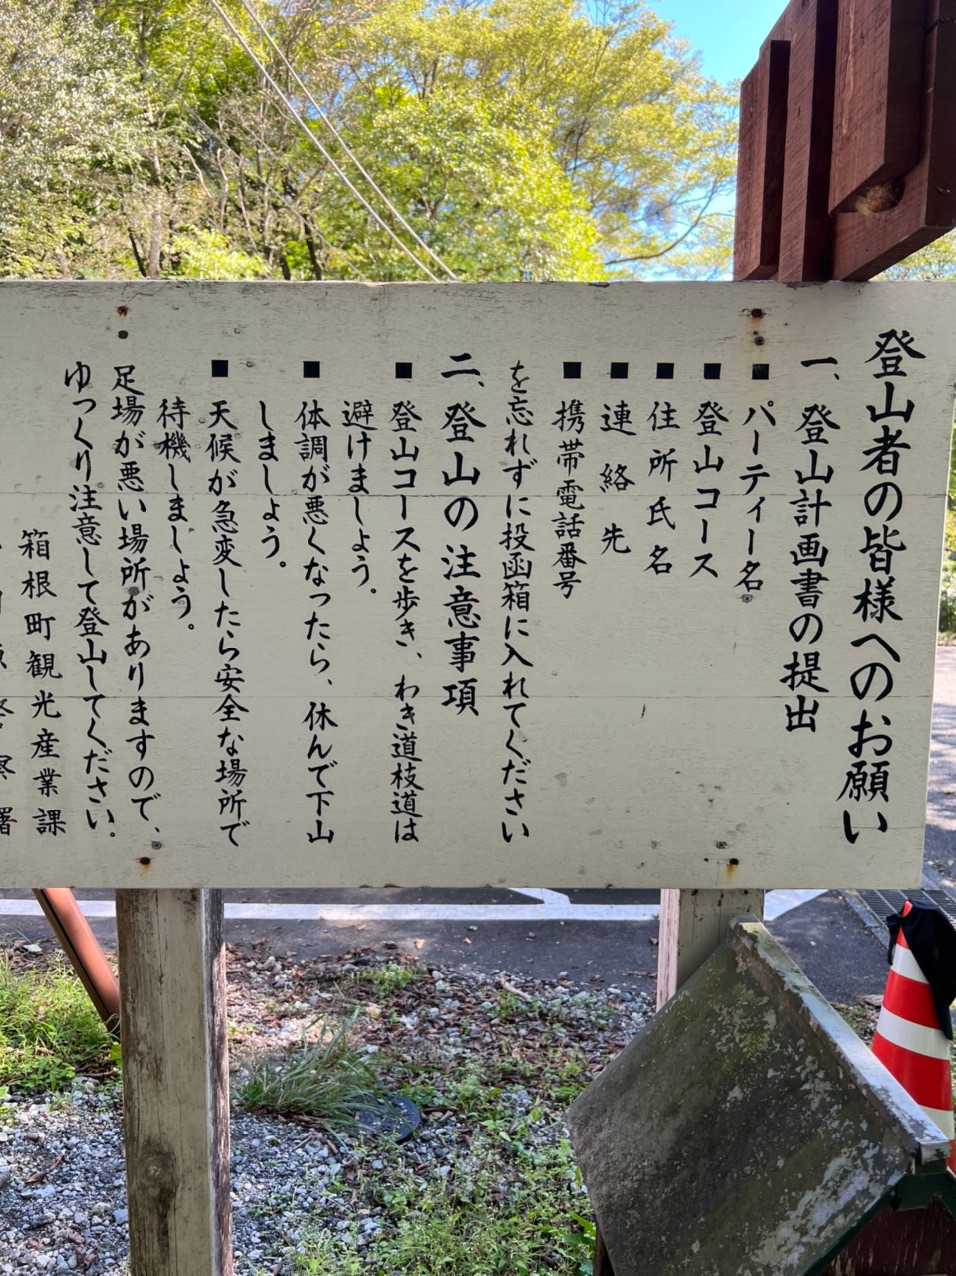 登山者の皆様へのお願い
一、登山計画書の提出
■ パーティー名
■ 登山コース
■ 住所氏名
■ 連絡先
■ 携帯電話番号
を忘れずに投函箱に入れてください
二、登山の注意事項
■ 登山コースを歩き、わき道枝道は
避けましょう。
■ 体調が悪くなったら、休んで下山
しましょう。
■ 天候が急変したら安全な場所で
待機しましょう。
足場が悪い場所がありますので、
ゆっくり注意して登山してください。
箱根町観光産業課
察署